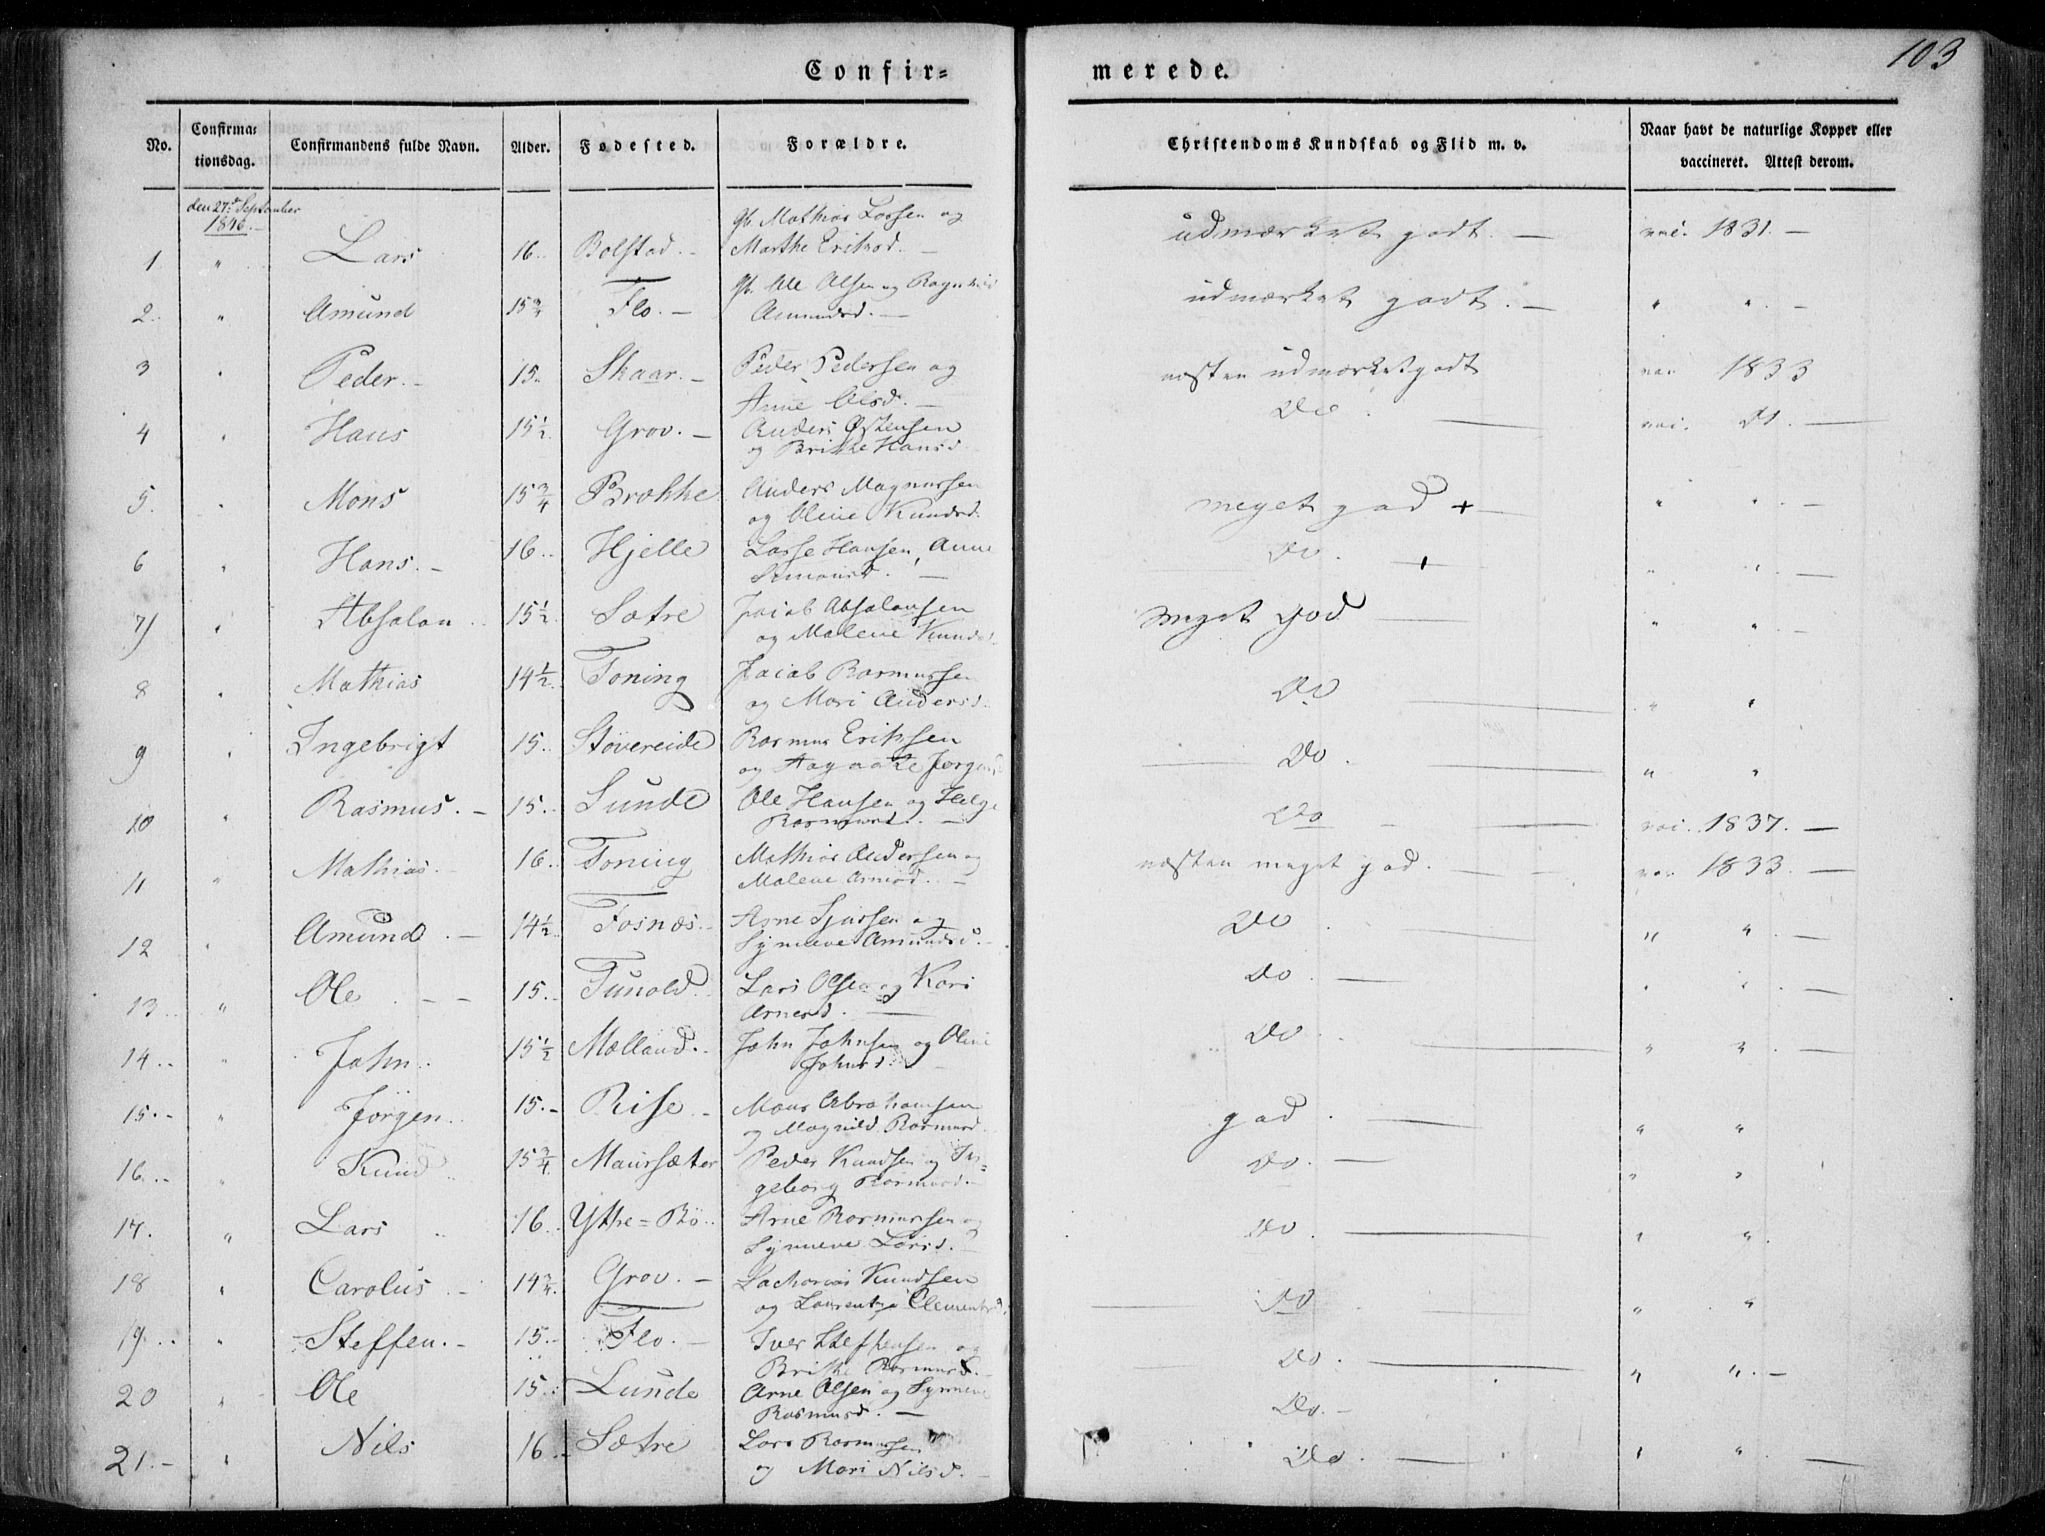 103
Confir=
merede.
No. Confirma=tionsdag. Confirmandens fulde Navn. Alder. Fødested. Forældre. Christendoms Kundskab og Flid m. v. Naar havt de naturlige Kopper eller vaccineret. Attest derom.
den 27de September
1846.
gb. Mathias Larsen og
1 " Lars 16.. Bolstad. Marthe Eriksd. udmærket godt. — vac. 1831. —
gb. Ole Olsen og Ragnhild
2.. " Amund 15 3/4 Flo. — Amundsd. — udmærket godt. — " ". —
3 " Peder. — 15. Skaar. — Peder Pedersen og næsten udmærket godt vac 1833
Anne Olsd. —
4 " Hans 15 1/2 Grov. — Anders Østensen Do vac. Do. —
og Brithe Hansd
5. " Mons 15 3/4 Brække Anders Magnussen meget god + — " ". —
og Oline Knudsd.
6 " Hans. — 16.. Hjelle Lasse Hansen, Anne Do. + " ". —
Simonsd. —
7) " Absalon 15 1/2 Sætre Jacob Absalonsen meget god — " ". —
og Malene Knudsd
8 " Mathias 14 1/2 Toning Jacob Rasmussen Do — " "
og Mari Andersd.
9 " Ingebrigt 15. Støvereide Rasmus Eriksen Do. — " "
og Aagaathe Jørgensd
10 " Rasmus. — 15. Sunde Ole Hansen og Helge Do — vac. 1837. —
Rasmusd. —
11 " Mathias. 16. Toning Mathias Andersen og næsten meget god. — vac. 1833. —
Malene Arnesd. —
12 " Amund. — 14 1/2 Fosnæs. Arne Sjursen og Do — " ". —
Synneve Amundsd. —
13.. " Ole. — — 15. Tunold. Lars Olsen og Kari Do. — " ". —
Arnesd. —
14.. " John. 15 1/2 Mølland. John Johnsen og Oline Do. — " ". —
Johnsd. —
15. — " Jørgen. 15. — Rise. — Mons Abrahamsen god. — " "
og Magnild Rasmusd.
16.. " Knud 15 3/4 Maursæter Peder Knudsen og In= Do. — " "
geborg Rasmusd. —
17. " Lars 16. Ytre=Bø.. Arne Rasmussen og Do. — " ".
Synneve Larsd.
18 " Carolus. — 14 3/4 Grov. — Zacharias Knudsen Do — " "
og Laurentze Clementsd.
19. .. " Steffen. — 15. — Flo. — Iver Steffensen og Do. — " ". —
Brithe Rasmusd. —
20 " Ole 15. Lunde Arne Olsen og Synneve Do. —
Rasmusd. —
21. — " Nils 16. Sætre Lars Rasmussen Do. — " " —
og Mari Nilsd. —